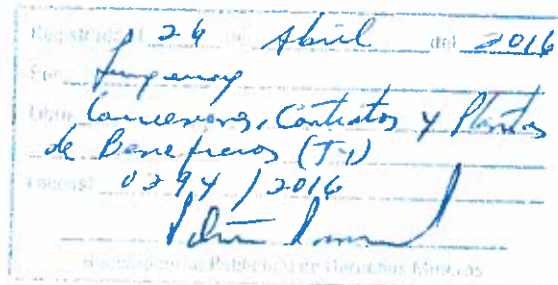 Registrado el 26 de Abril del 2016
Por
Libro Concesiones, Contratos y Plantas
de Beneficios (T-1)
Folio(s) 0294 / 2016
Público de Derechos Mineros